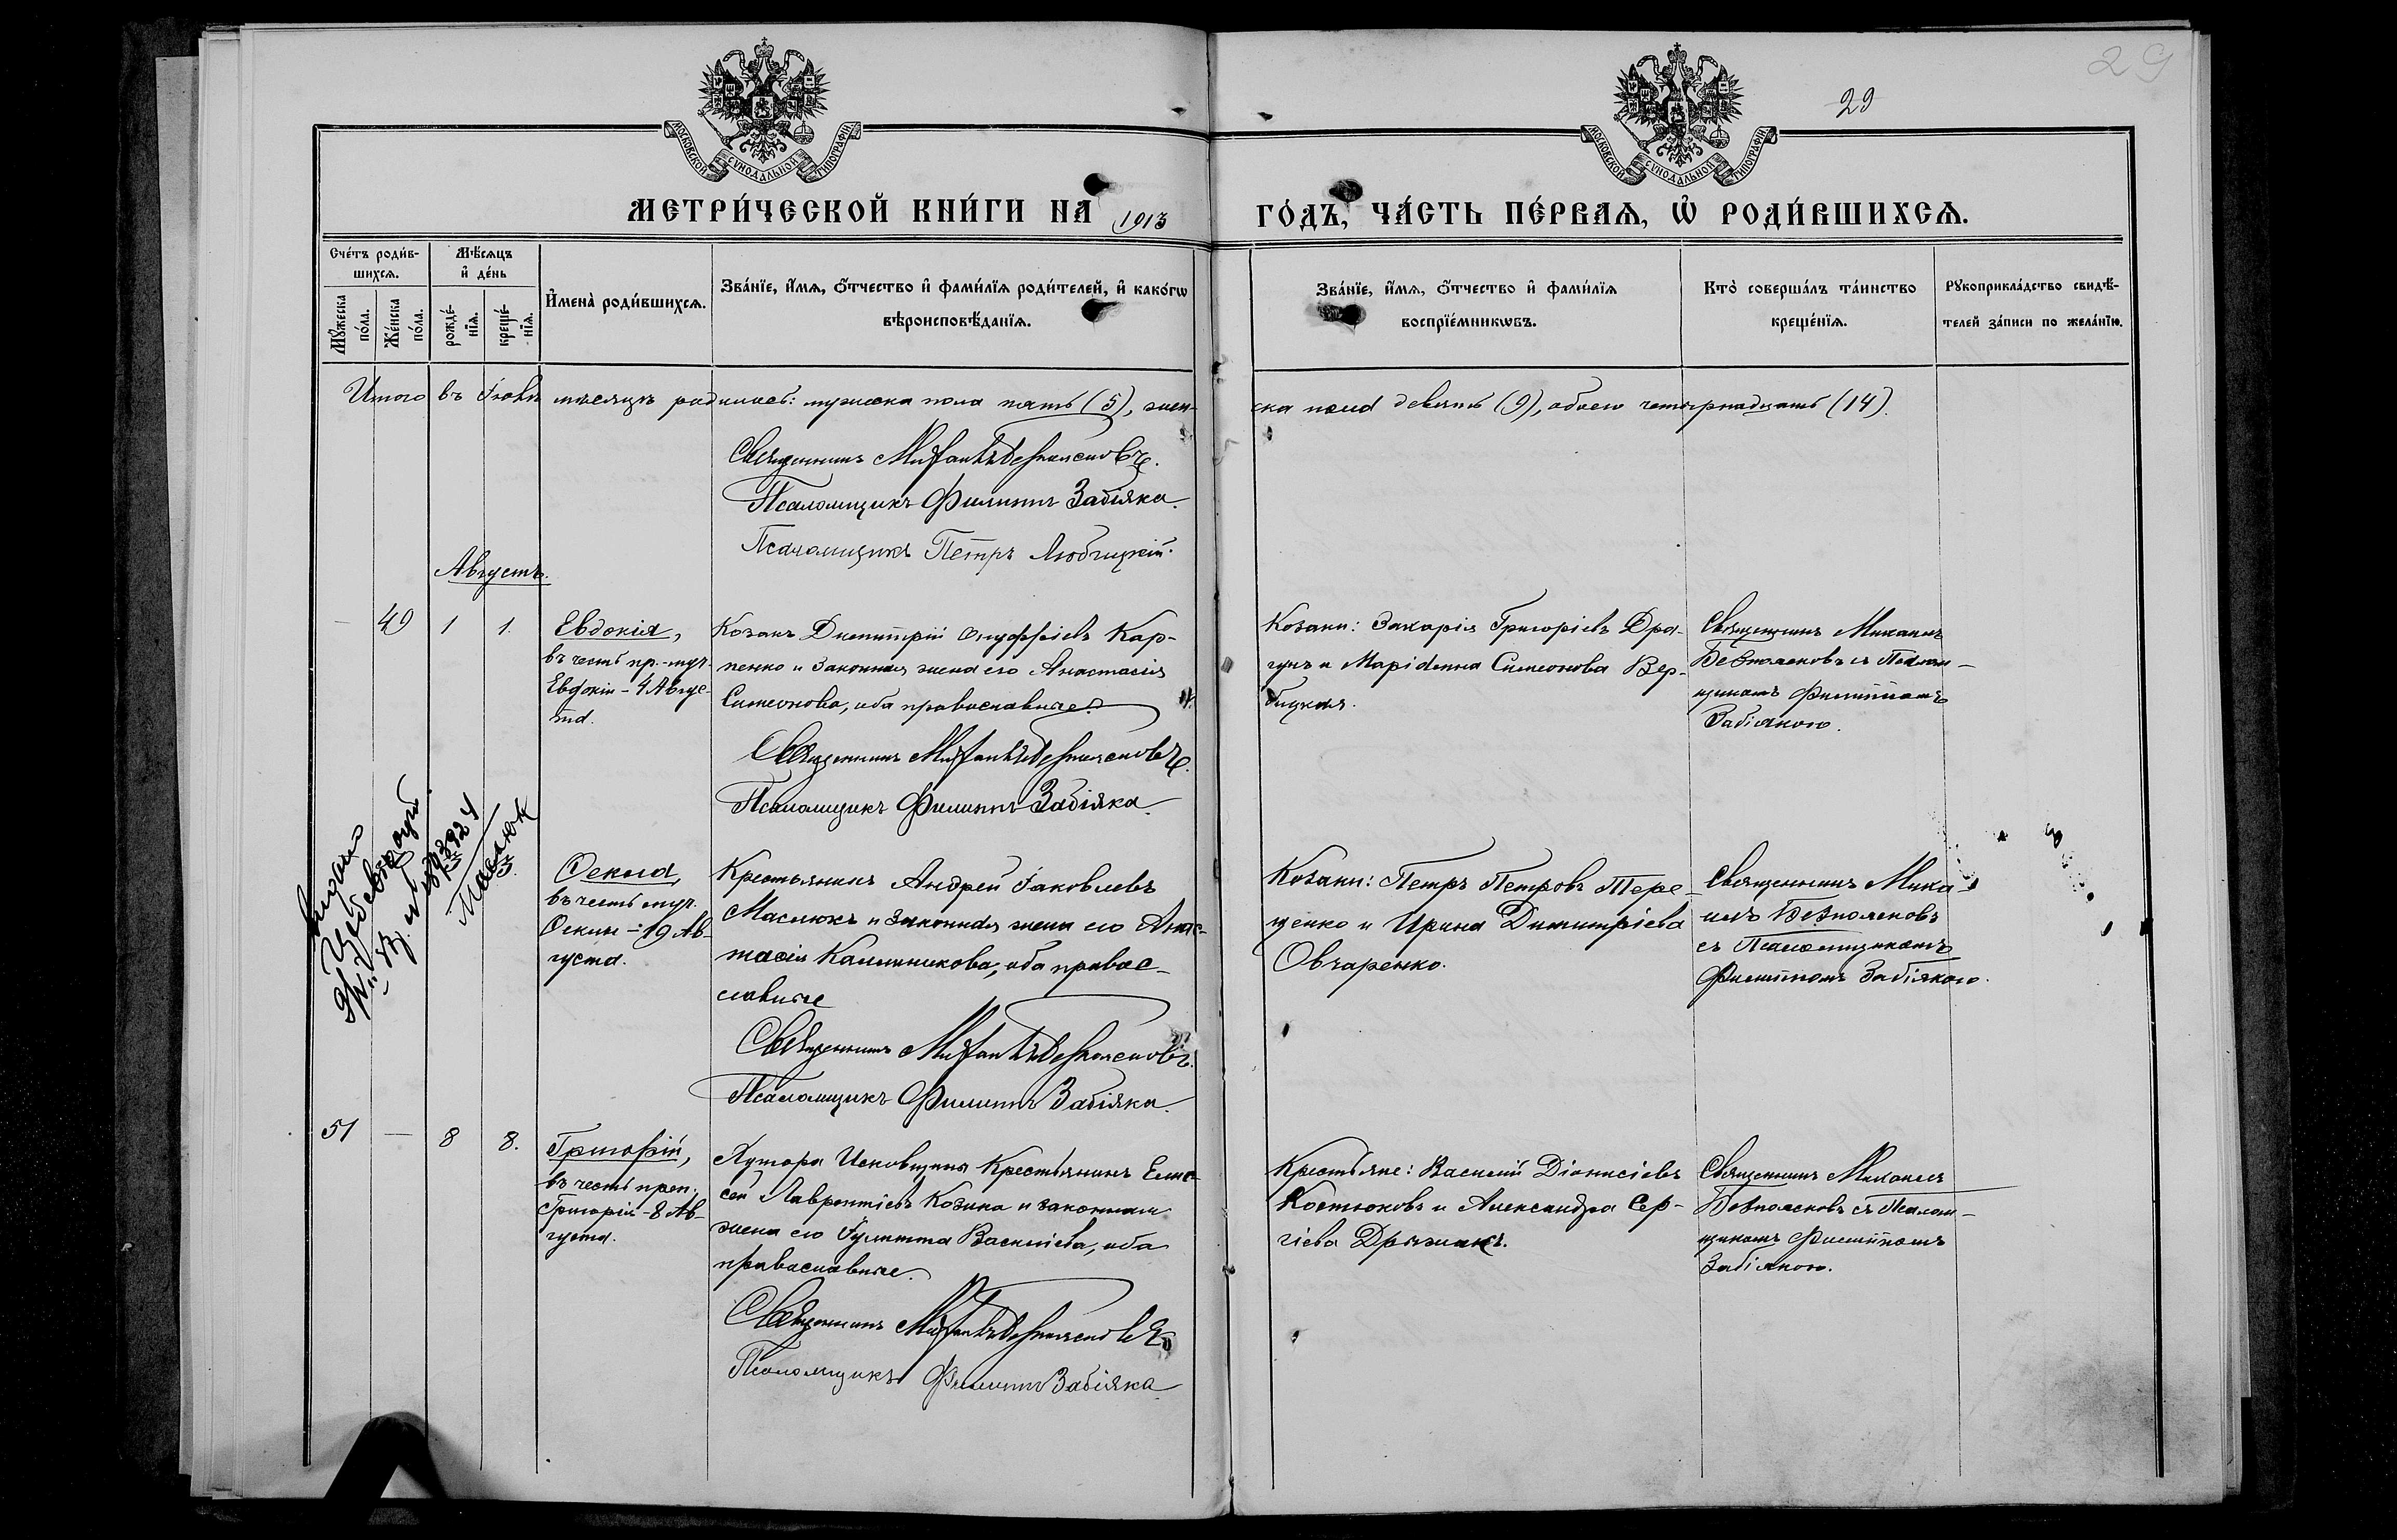 29
29
МОСКОВСКОЙ СУНОДАЛЬНОЙ ТИПОГРАФІИ
МОСКОВСКОЙ СУНОДАЛЬНОЙ ТИПОГРАФІИ
МЕТРИ́ЧЕСКОЙ КНИ́ГИ НА 1913 ГО́ДЪ, ЧА́СТЬ ПЕ́РВАѦ, Ѡ҆ РОДИ́ВШИХСѦ.
Сче́тъ роди́в-
шихсѧ.
Мѣ́сѧцъ
и҆ де́нь
Мꙋ́жеска
по́ла.
Же́нска
по́ла.
рожде́-
нїѧ.
креще́-
нїѧ.
И҆мена̀ роди́вшихсѧ.
Зва́нїе, и҆́мѧ, ѻ҆́тчество и҆ фами́лїѧ роди́телей, и҆ како́гѡ
вѣроисповѣ́данїѧ.
Зва́нїе, и҆́мѧ, ѻ҆́тчество и҆ фами́лїѧ
воспрїе́мникѡвъ.
Кто̀ соверша́лъ та́инство
креще́нїѧ.
Рꙋкоприкла́дство свидѣ́-
телей за́писи по жела́нїю.
Итого въ Іюлѣ мѣсяцѣ родилось: мужеска пола пять (5), жен-
ска пола девять (9), обоего четырнадцать (14).
Священникъ Михаилъ Безполсновъ.
Псаломщикъ Филиппъ Забіяка.
Псаломщикъ Петръ Любицкій.
Августъ.
— 49 1 1.
Евдокія,
въ честь пр.-муч.
Евдокіи - 4 Авгус-
та.
Козакъ Димитрій Онуффріевъ Кар-
пенко и законная жена его Анастасія
Симеонова, оба православные.
Священникъ Михаилъ Безполсновъ.
Псаломщикъ Филиппъ Забіяка.
Козаки: Захарія Григоріевъ Дра-
гунъ и Маріамна Симеонова Вер-
бицкая.
Священникъ Михаилъ
Безполсновъ съ Псалом-
щикомъ Филиппомъ
Забіякою.
3 3.
Маслюк
Ѳекла,
въ честь муч.
Ѳеклы - 19 Ав-
густа.
Крестьянинъ Андрей Іаковлевъ
Маслюкъ и законная жена его Анас-
тасія Калинникова, оба правос-
лавные
Священникъ Михаилъ Безполсновъ.
Псаломщикъ Филиппъ Забіяка.
Козаки: Петръ Петровъ Тере-
щенко и Ирина Димитріева
Овчаренко.
Священникъ Миха-
илъ Безполсновъ
съ Псаломщикомъ
Филиппомъ Забіякою.
51 — 8 8.
Григорій,
въ честь преп.
Григорія - 8 Ав-
густа.
Хутора Исковщины Крестьянинъ Елис-
сей Лаврентіевъ Козика и законная
жена его Іулитта Василіева, оба
православные.
Священникъ Михаилъ Безполсновъ
Псаломщикъ Филиппъ Забіяка
Крестьяне: Василій Діонисіевъ
Костюковъ и Александра Сер-
гіева Дрыжакъ.
Священникъ Михаилъ
Безполсновъ съ Псалом-
щикомъ Филиппомъ
Забіякою.